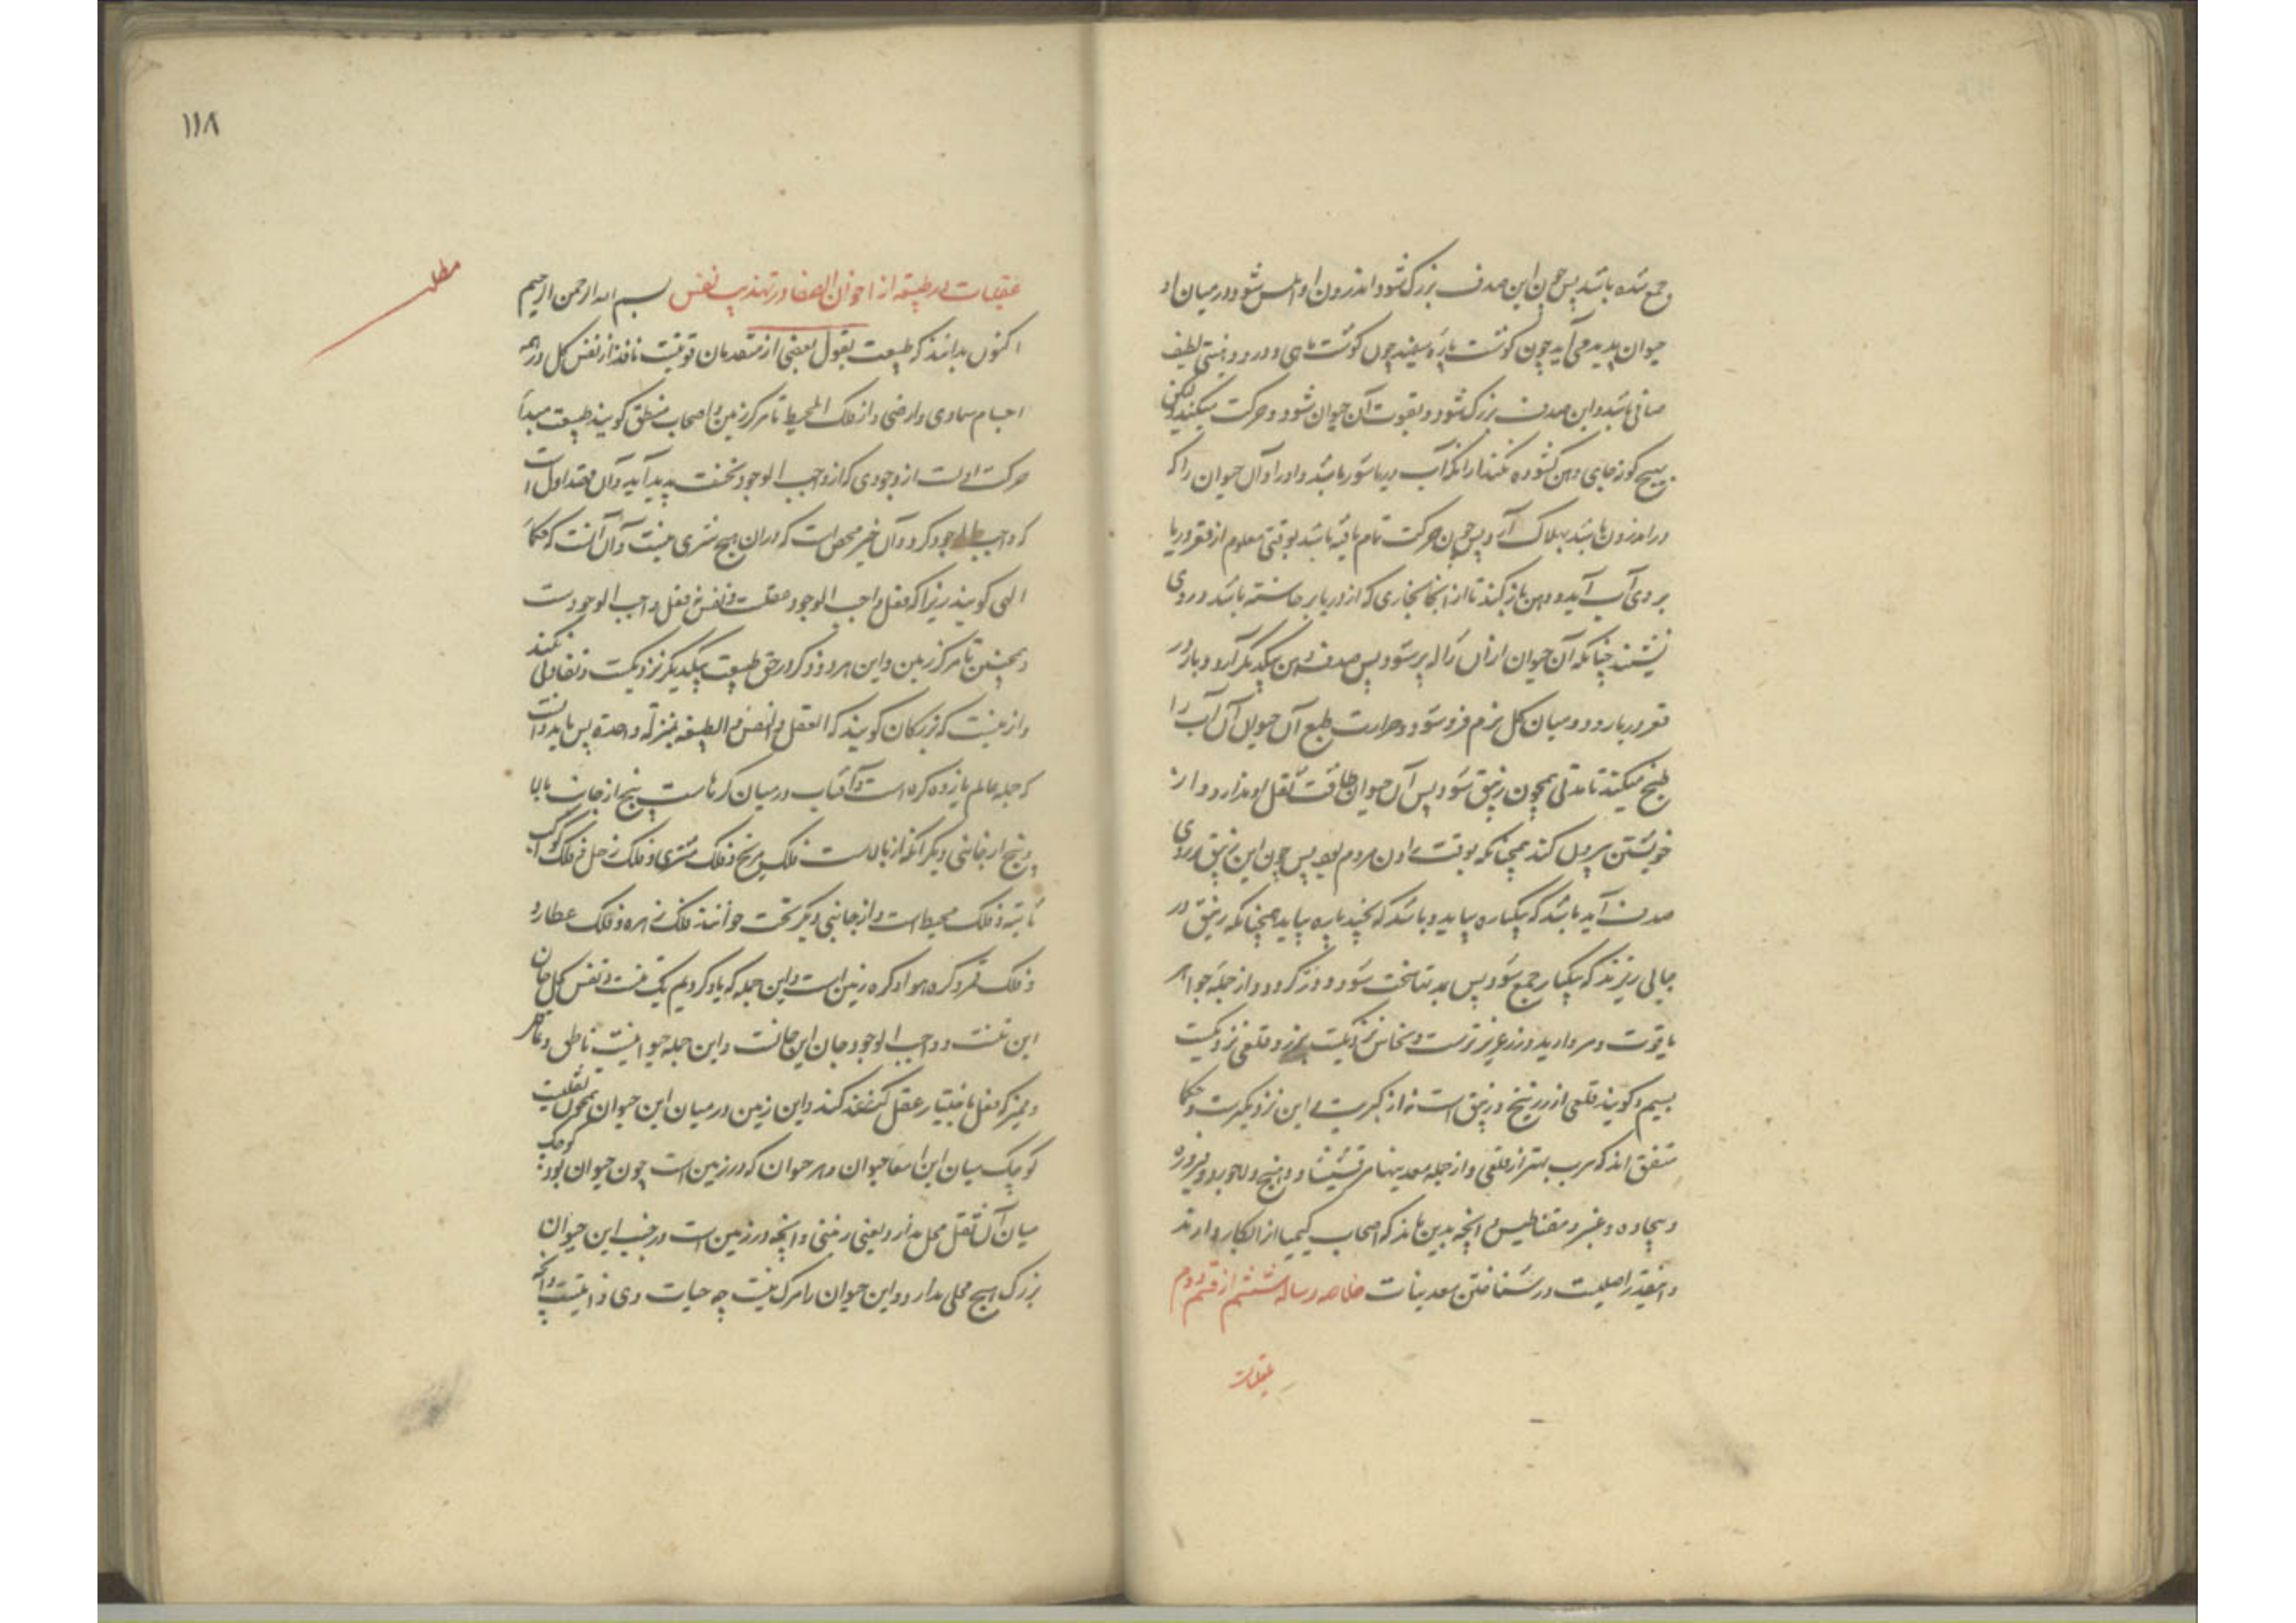 و جمع شده باشد پس چون این صدف بزرگ شود و اندرون او املس شود و در میان او
حیوان پدید می آید چون گوشت پاره سفید چون گوشت ماهی و در و دهنیتی لطیف
صافی باشد و این صدف بزرگ شود و بقوت آن حیوان شود و حرکت میکند لیکن
هیچ گونه جای دهن گشوده نکند از آنکه آب دریا شور باشد و او را و آن حیوان را که
در اندرون باشد بهلاک آرد پس چون حرکت تمام یافته باشد بوقتی معلوم از قعر دریا
بر وی آب آید و دهن باز کند تا از آنجا بخاری که از دریا برخاسته باشد در وی
نشیند چنانکه آن حیوان از آن ژاله پر شود پس صدف دهن بیکدیگر آرد و باز در
قعر دریا رود و میان گل نرم فرو شود و حرارت طبع آن حیوان آن آب را
طبخ میکند تا مدتی همچون زیبق شود پس آن حیوان طاقت ثقل او ندارد و از
خویشتن بیرون کند همچنانکه بوقت زادن مردم بود پس چون این زیبق در روی
صدف آید باشد که بیکباره بیاید و باشد که بچند باره بیاید همچنانکه زیبق در
جایی ریزند که بیکبار جمع شود پس بمدتها سخت شود و در گردد و از جمله جواهر
یاقوت و مروارید و زر عزیزترست و نحاس نزدیکست بزر و قلعی نزدیکست
بسیم و گویند قلعی از زرنیخ و زیبق است نه از کبریت و این نزدیکترست و حکما
متفق اند که سرب بهتر از قلعی و از جمله معدنیها مرقشیشا و دهنج و لاجورد و فیروزه
و بیجاده و عنبر و مغناطیس و آنچه بدین ماند که اصحاب کیمیا از آن بکار دارند
و اینقدر اصلیست در شناختن معدنیات خلاصه رساله ششم از قسم دوم
عقلیات
۱۱۸
مطلب
عقلیات در طبیعة از اخوان الصفا در تهذیب نفس بسم الله الرحمن الرحیم
اکنون بدانند که طبیعت بقول بعضی از متقدمان قوتیست نافذ از نفس کل در همه
اجسام سماوی و ارضی و از فلک المحیط تا مرکز زمین و اصحاب منطق گویند طبیعت مبدأ
حرکت اولست از وجودی که از واجب الوجود نخست پدید آید و آن قصد اول است
که واجب الوجود کرد و آن خیر محض است که در آن هیچ شری نیست و آن آنست که حکما
الهی گویند زیرا که فعل واجب الوجود عقلست و نفس فعل واجب الوجودست
و همچنین تا مرکز زمین و این هر دو ذکر در حق طبیعت بیکدیگر نزدیکست و تفاوتی نکند
و از اینست که بزرگان گویند که العقل و النفس و الطبیعة بمنزلة واحدة پس بباید دانست
که جمله عالم یازده کره است و آفتاب در میان کرهاست پنج از جانب بالا
و پنج از جانبی دیگر آنکه از بالاست فلک مریخ و فلک مشتری و فلک زحل و فلک کواکب
ثابته و فلک محیط است و از جانبی دیگر تحت خوانند فلک زهره و فلک عطارد
و فلک قمر و کره هوا و کره زمین است و این جمله که یاد کردیم یک تنست و نفس کل جان
این تنست و واجب الوجود جان این جانست و این جمله حیوانیست ناطق و عاقل
و ممیز که فعل باختیار عقل کند و این زمین در میان این حیوان همچون ثفلیست
کوچک میان این امعا حیوان و هر حیوان که در زمین است چون حیوان بود کوچک
میان آن ثفل محل ندارد یعنی زمنی و آنچه در زمین است در جنب این حیوان
بزرگ هیچ محلی ندارد و این حیوان را مرگ نیست چه حیات وی ذاتیست و آنچه